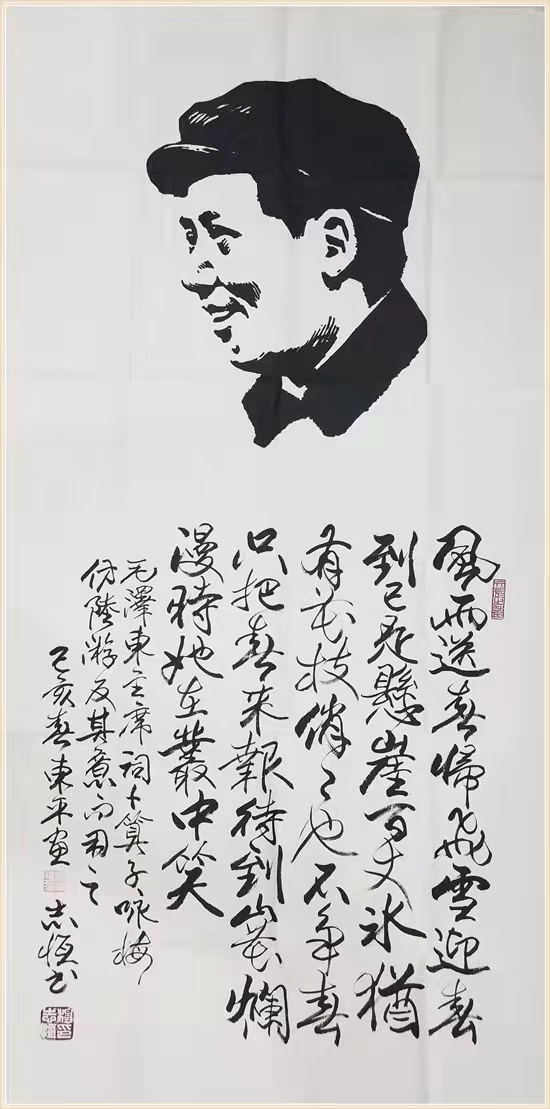 風雨送春帰飛雪迎春
到已是懸崖百丈冰猶
有花枝俏々也不争春
只把春来報待到山花爛
漫時她在叢中笑
毛澤東主席詞卜算子咏梅
仿陸游反其意而用之
己亥春東平画
志恒书